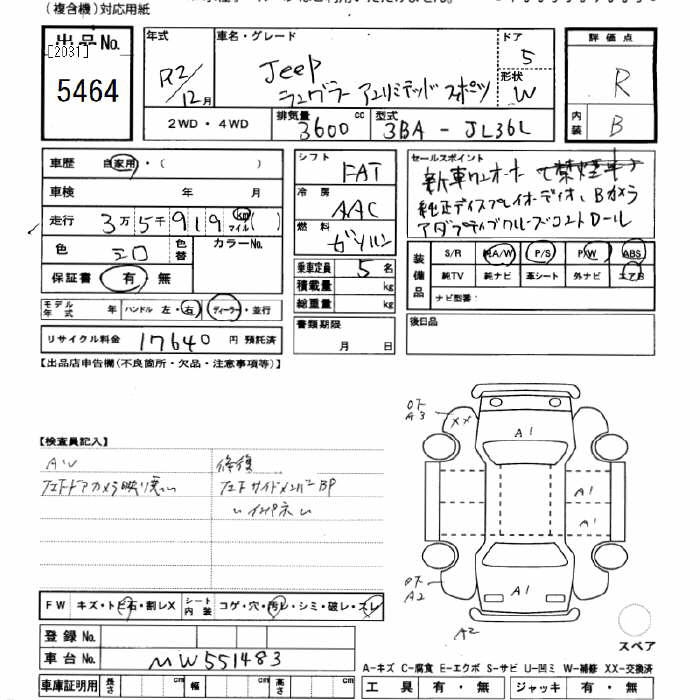 (複合機)対応用紙
出品No.
[2031]
5464
年式
R2/12月
車名・グレード
Jeep
ラングラー アンリミテッド スポーツ
ドア
5
形状
W
評価点
R
内装
B
2WD・4WD
排気量
3600 cc
型式
3BA - JL36L
車歴 自家用・( )
車検 年 月
走行 3万5千919 km マイル( )
色 シロ 色替 カラーNo.
保証書 有・無
シフト FAT
冷房 AAC
燃料 ガソリン
乗車定員 5名
積載量 kg
総重量 kg
セールスポイント
新車ワンオーナー 禁煙車
純正ディスプレイオーディオ、Bカメラ
アダプティブクルーズコントロール
装備品
S/R 純A/W P/S P/W ABS
純TV 純ナビ 革シート 外ナビ エアB
ナビ型番:
モデル年式 ハンドル 左・右 ディーラー・並行
リサイクル料金 17640円 預託済
書類期限
月 日
後日品
【出品店申告欄(不良箇所・欠品・注意事項等)】
【検査員記入】
AW
修復
フェンダーサイドメンバーBP
A1
A1
A1
A1
A3
XX
A2
A2
FW キズ・トビ石・割レX シート内装 コゲ・穴・汚レ・シミ・破レ・スレ
登録No.
車台No. MW551483
スペア
A-キズ C-腐食 E-エクボ S-サビ U-凹ミ W-補修 XX-交換済
車庫証明用 長さ cm 幅 cm 高さ cm
工具 有・無 ジャッキ 有・無